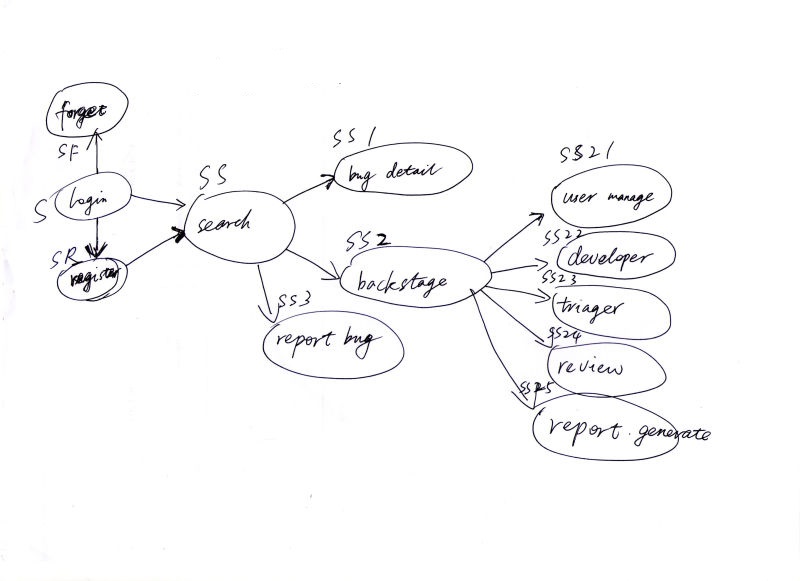 forget
SF
S
login
SR
register
SS
search
SS1
bug detail
SS2
backstage
SS3
report bug
SS21
user manage
SS22
developer
SS23
triager
SS24
review
SS25
report generate